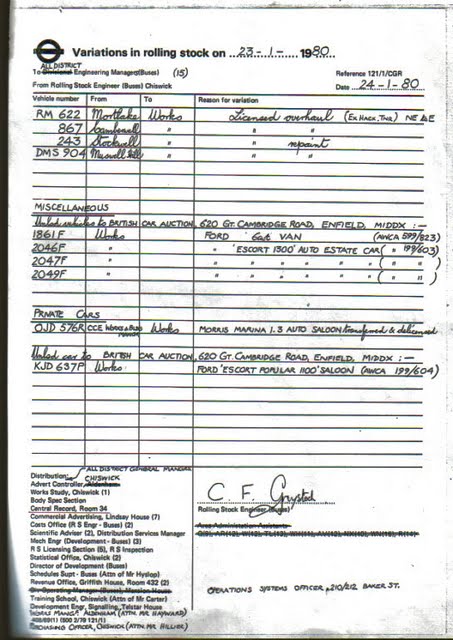 Variations in rolling stock on 23-1- 1980
ALL DISTRICT
To Divisional Engineering Managers (Buses) (15)
Reference 121/1/CGR
From Rolling Stock Engineer (Buses) Chiswick
Date 24-1-80
Vehicle number From To Reason for variation
RM 622 Mortlake Works Licensed overhaul (Ex Hack, Tng.)
867 Camberwell " " "
243 Stockwell " " repaint
DMS 904 Muswell Hill " " "
MISCELLANEOUS
Unlicd vehicles to BRITISH CAR AUCTION, 620 GT. CAMBRIDGE ROAD, ENFIELD, MIDDX :-
1861F Works FORD VAN (AWCA 599/823)
2046F " " 'ESCORT 1300' AUTO ESTATE CAR ( " 199/603)
2047F " " " " " " ( " " )
2049F " " " " " " ( " " )
PRIVATE CARS
OJD 576R CCE Works Works MORRIS MARINA 1.3 AUTO SALOON transferred & delicensed
Unlicd car to BRITISH CAR AUCTION, 620 GT. CAMBRIDGE ROAD, ENFIELD, MIDDX :-
KJD 637P Works FORD 'ESCORT POPULAR 1100' SALOON (AWCA 199/604)
ALL DISTRICT GENERAL MANAGER
Distribution: CHISWICK
Advert Controller, Aldenham
Works Study, Chiswick (1)
Body Spec Section
Central Record, Room 34
Commercial Advertising, Lindsay House (7)
Costs Office (R S Engr - Buses) (2)
Scientific Adviser (2), Distribution Services Manager
Mech Engr (Development - Buses) (3)
R S Licensing Section (5), R S Inspection
Statistical Office, Chiswick (2)
Director of Development (Buses)
Schedules Supt - Buses (Attn of Mr Hyslop)
Revenue Office, Griffith House, Room 432 (2)
Div Operating Manager (Buses), Mansion House
Training School, Chiswick (Attn of Mr Carter)
Development Engr, Signalling, Telstar House
WORKS MANGR. ALDENHAM (ATTN. MR HAYWARD)
PURCHASING OFFICER, CHISWICK (ATTN. MR HILLIER)
C F
Rolling Stock Engineer (Buses)
Area Administration Assistants
OPERATIONS SYSTEMS OFFICER, 210/212 BAKER ST.